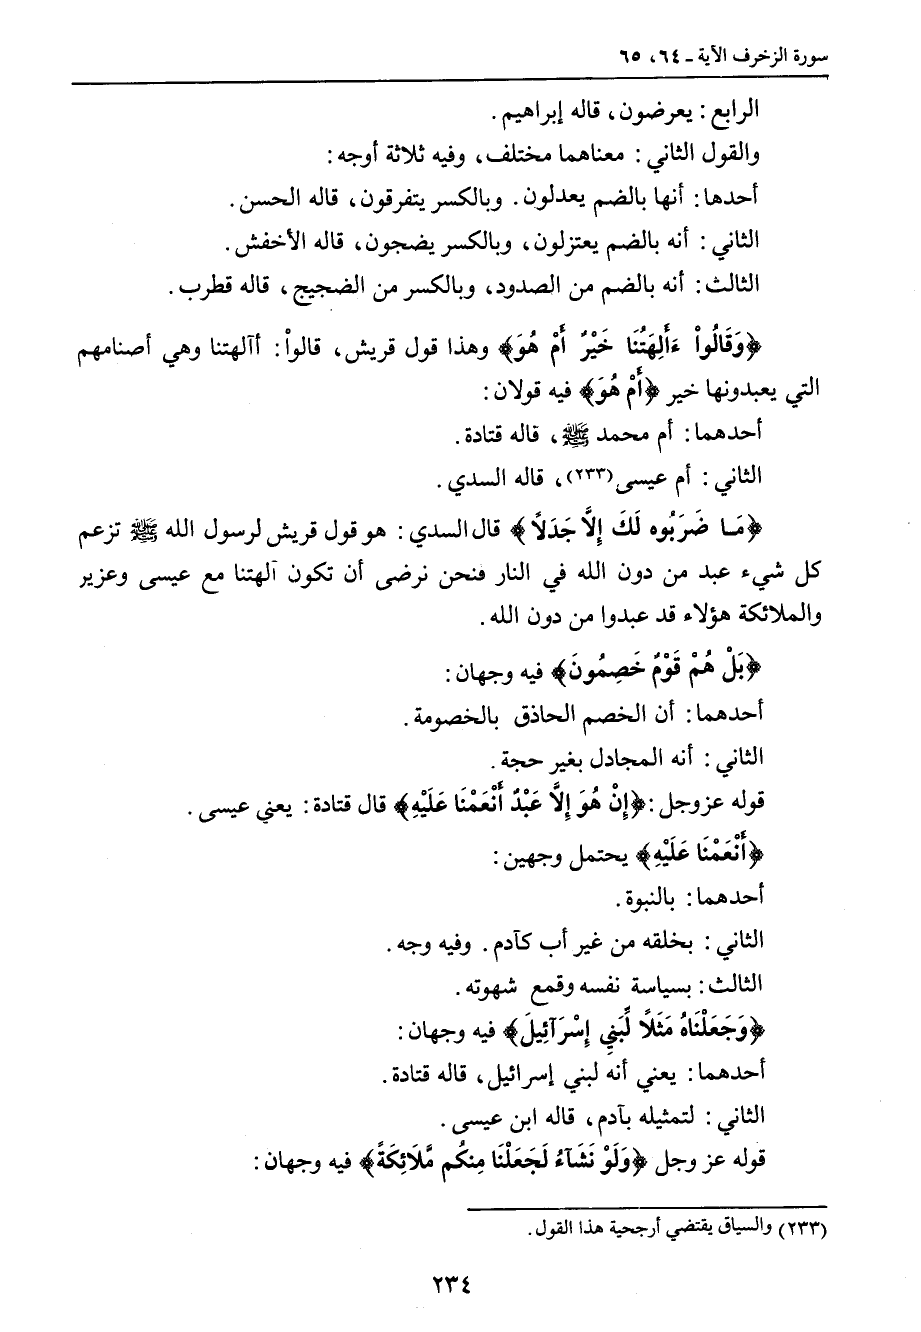 سورة الزخرف الآية ـ ٦٤، ٦٥
الرابع : يعرضون، قاله إبراهيم .
والقول الثاني : معناهما مختلف، وفيه ثلاثة أوجه :
أحدها : أنها بالضم يعدلون . وبالكسر يتفرقون، قاله الحسن .
الثاني : أنه بالضم يعتزلون، وبالكسر يضجون، قاله الأخفش .
الثالث : أنه بالضم من الصدود، وبالكسر من الضجيج، قاله قطرب .
﴿وَقَالُواْ ءَأَلِهَتُنَا خَيْرٌ أَمْ هُوَ﴾ وهذا قول قريش، قالواْ : أآلهتنا وهي أصنامهم
التي يعبدونها خير ﴿أَمْ هُوَ﴾ فيه قولان :
أحدهما : أم محمد ﷺ، قاله قتادة .
الثاني : أم عيسى(٢٣٣)، قاله السدي .
﴿مَـا ضَرَبُوه لَكَ إِلَّا جَدَلاً﴾ قال السدي : هو قول قريش لرسول الله ﷺ تزعم
كل شيء عبد من دون الله في النار فنحن نرضى أن تكون آلهتنا مع عيسى وعزير
والملائكة هؤلاء قد عبدوا من دون الله .
﴿بَلْ هُمْ قَوْمٌ خَصِمُونَ﴾ فيه وجهان :
أحدهما : أن الخصم الحاذق بالخصومة .
الثاني : أنه المجادل بغير حجة .
قوله عزوجل : ﴿إِنْ هُوَ إِلَّا عَبْدٌ أَنْعَمْنَا عَلَيْهِ﴾ قال قتادة : يعني عيسى .
﴿أَنْعَمْنَا عَلَيْهِ﴾ يحتمل وجهين :
أحدهما : بالنبوة .
الثاني : بخلقه من غير أب كآدم . وفيه وجه .
الثالث : بسياسة نفسه وقمع شهوته .
﴿وَجَعَلْنَاهُ مَثَلًا لِّبَنِي إِسْرَآئِيلَ﴾ فيه وجهان :
أحدهما : يعني أنه لبني إسرائيل، قاله قتادة .
الثاني : لتمثيله بآدم، قاله ابن عيسى .
قوله عز وجل ﴿وَلَوْ نَشَآءُ لَجَعَلْنَا مِنكُم مَّلَائِكَةً﴾ فيه وجهان :
(٢٣٣) والسياق يقتضي أرجحية هذا القول .
٢٣٤